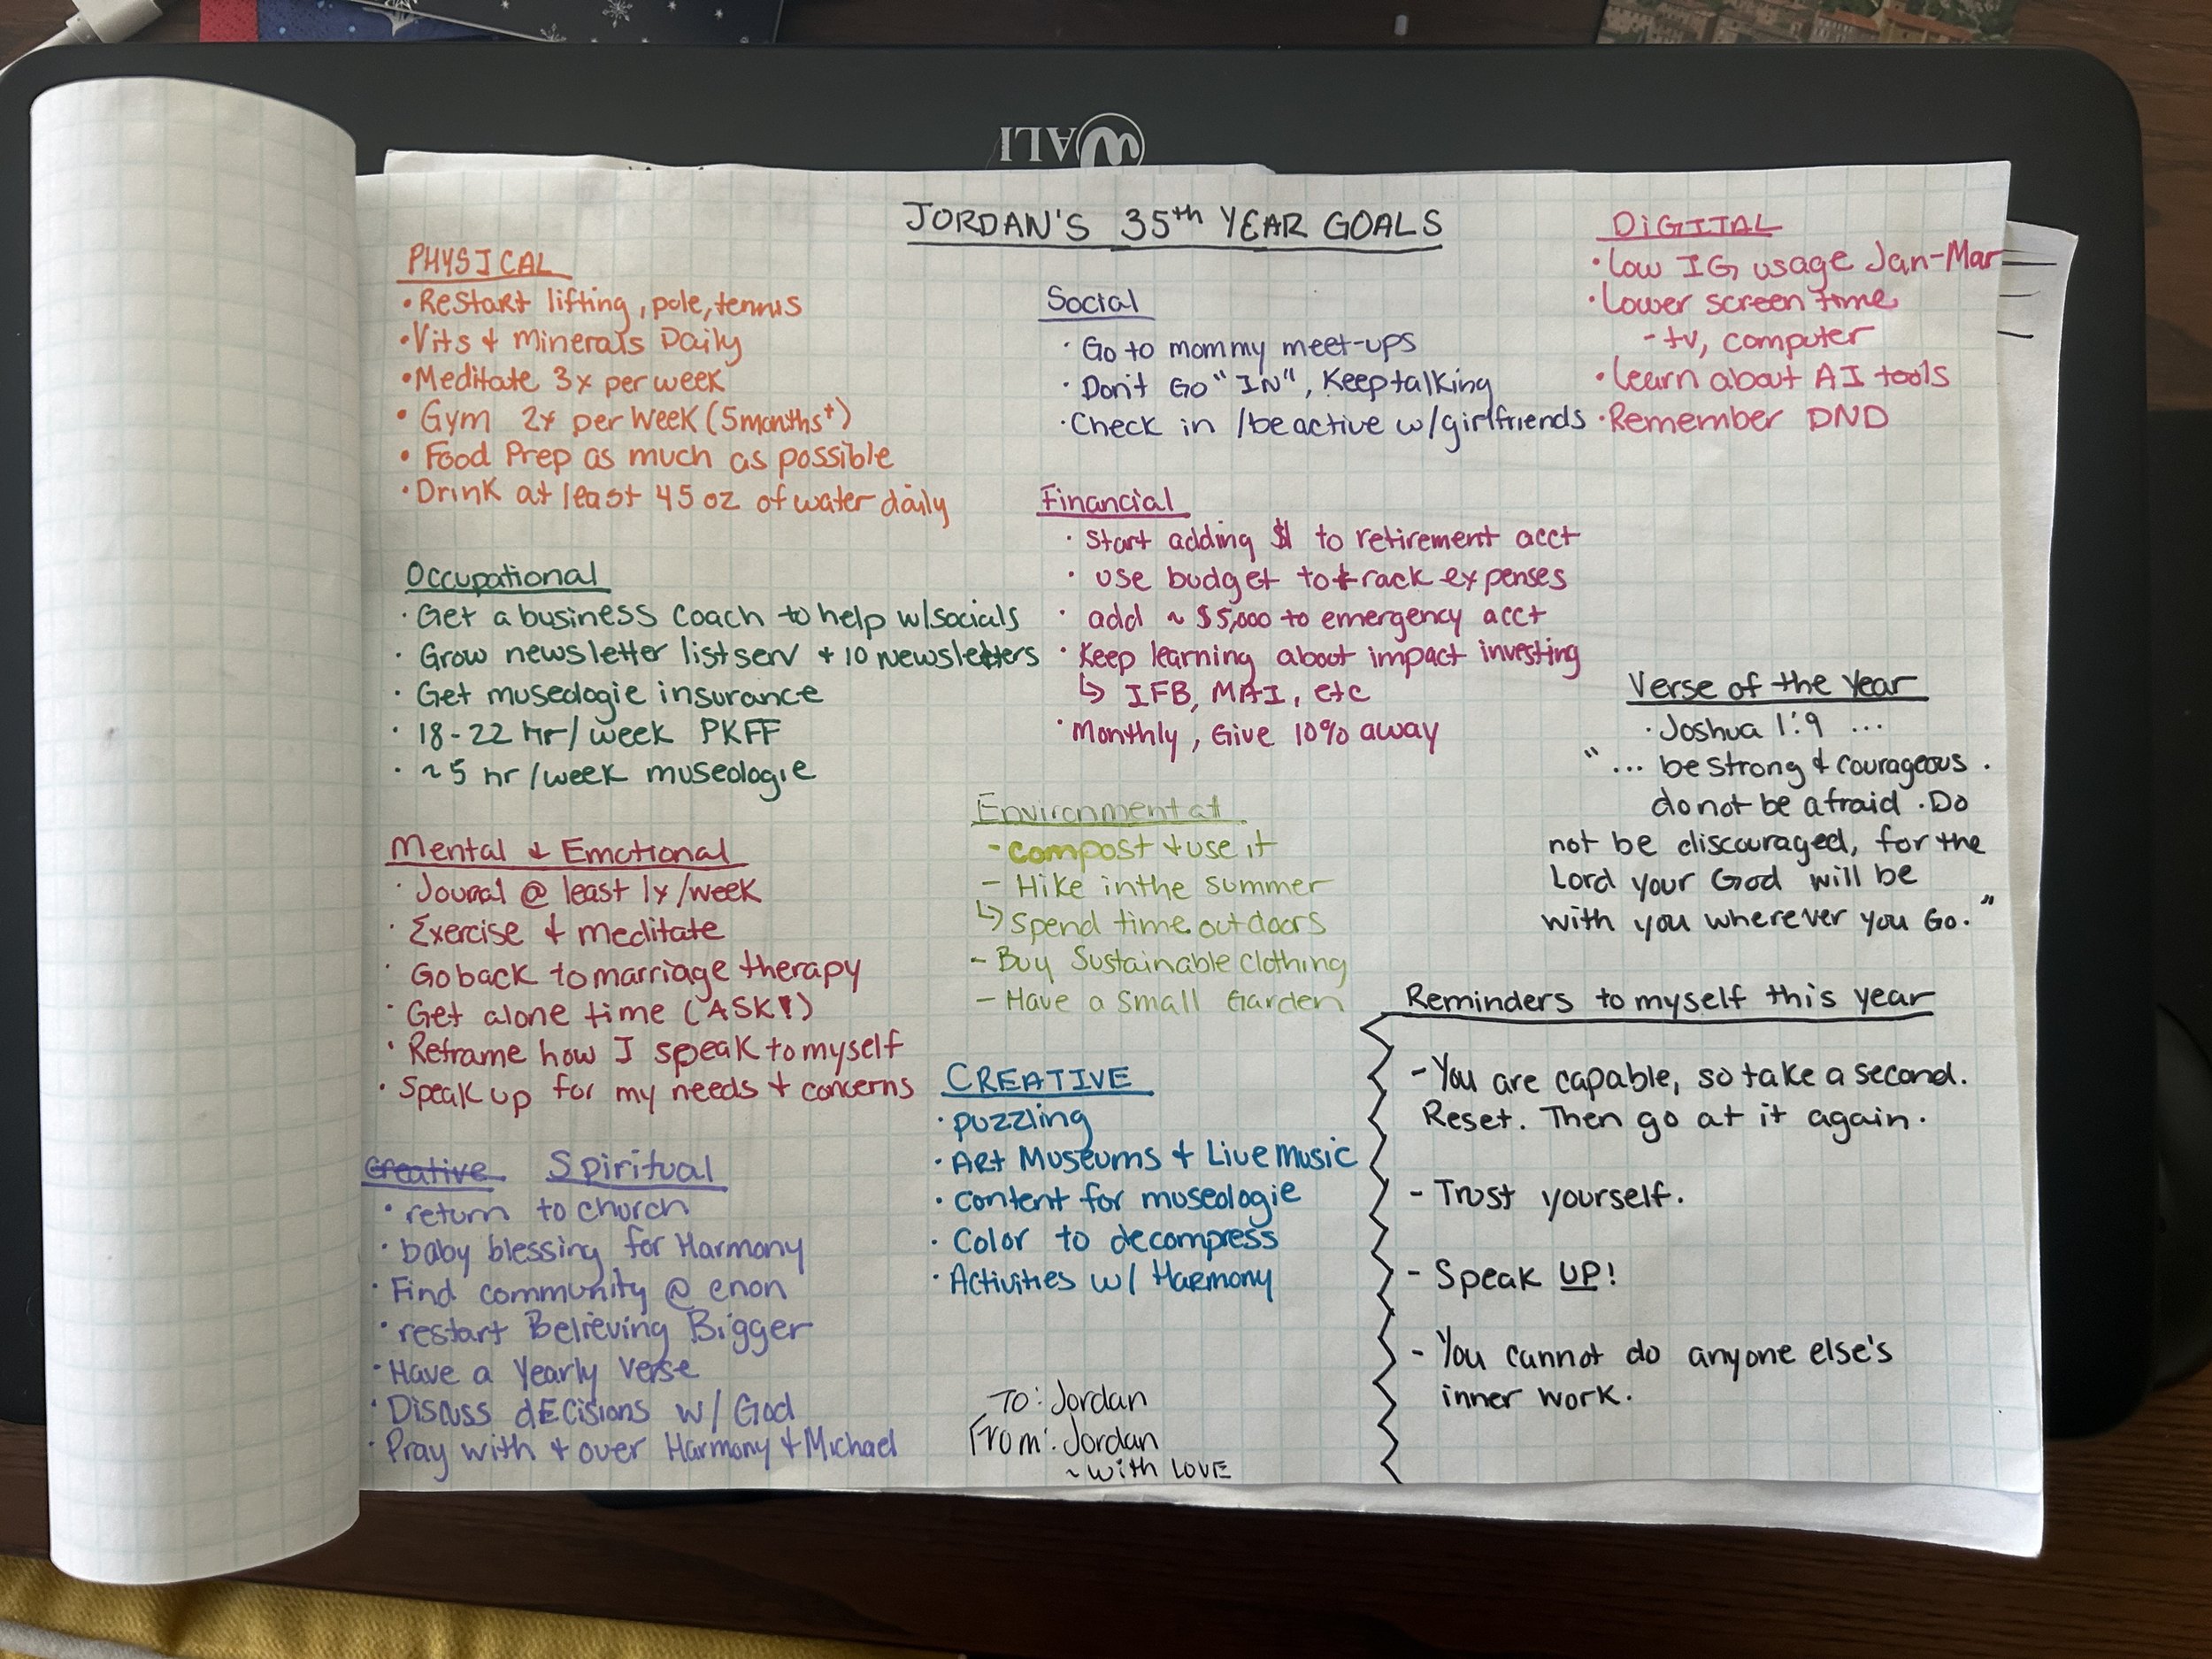 WALI
JORDAN'S 35th YEAR GOALS
PHYSICAL
• Restart lifting, pole, tennis
• Vits + Minerals Daily
• Meditate 3x per week
• Gym 2x per week (5months+)
• Food Prep as much as possible
• Drink at least 45 oz of water daily
Occupational
· Get a business coach to help w/socials
· Grow newsletter listserv + 10 newsletters
· Get museologie insurance
· 18-22 hr/week PKFF
· ~5 hr/week museologie
Mental & Emotional
· Journal @ least 1x/week
· Exercise & meditate
· Go back to marriage therapy
· Get alone time (ASK!)
· Reframe how I speak to myself
· Speak up for my needs + concerns
Creative Spiritual
· return to church
· baby blessing for Harmony
· Find community @ enon
· restart Believing Bigger
· Have a Yearly Verse
· Discuss decisions w/ God
· Pray with + over Harmony + Michael
Social
· Go to mommy meet-ups
· Don't Go "IN", Keep talking
· Check in /be active w/girlfriends
Financial
· Start adding $ to retirement acct
· use budget to track expenses
· add ~ $5,000 to emergency acct
· Keep learning about impact investing
↳ IFB, MAI, etc
· Monthly, Give 10% away
Environmental
- compost + use it
- Hike in the summer
↳ Spend time outdoors
- Buy Sustainable clothing
- Have a small Garden
CREATIVE
· puzzling
· Art Museums + Live music
· content for museologie
· Color to decompress
· Activities w/ Harmony
To: Jordan
From: Jordan
~ with LOVE
DIGITAL
· low IG usage Jan-Mar
· lower screen time
- tv, computer
· learn about AI tools
· Remember DND
Verse of the Year
· Joshua 1:9 ...
"... be strong & courageous.
do not be afraid. Do
not be discouraged, for the
Lord your God will be
with you wherever you Go."
Reminders to myself this year
- You are capable, so take a second.
Reset. Then go at it again.
- Trust yourself.
- Speak UP!
- You cannot do anyone else's
inner work.